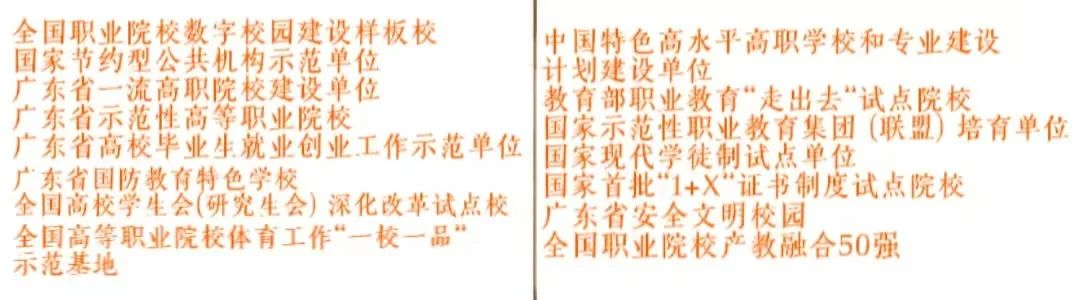 全国职业院校数字校园建设样板校
国家节约型公共机构示范单位
广东省一流高职院校建设单位
广东省示范性高等职业院校
广东省高校毕业生就业创业工作示范单位
广东省国防教育特色学校
全国高校学生会(研究生会) 深化改革试点校
全国高等职业院校体育工作“一校一品”
示范基地
中国特色高水平高职学校和专业建设
计划建设单位
教育部职业教育“走出去”试点院校
国家示范性职业教育集团 (联盟) 培育单位
国家现代学徒制试点单位
国家首批“1+X”证书制度试点院校
广东省安全文明校园
全国职业院校产教融合50强